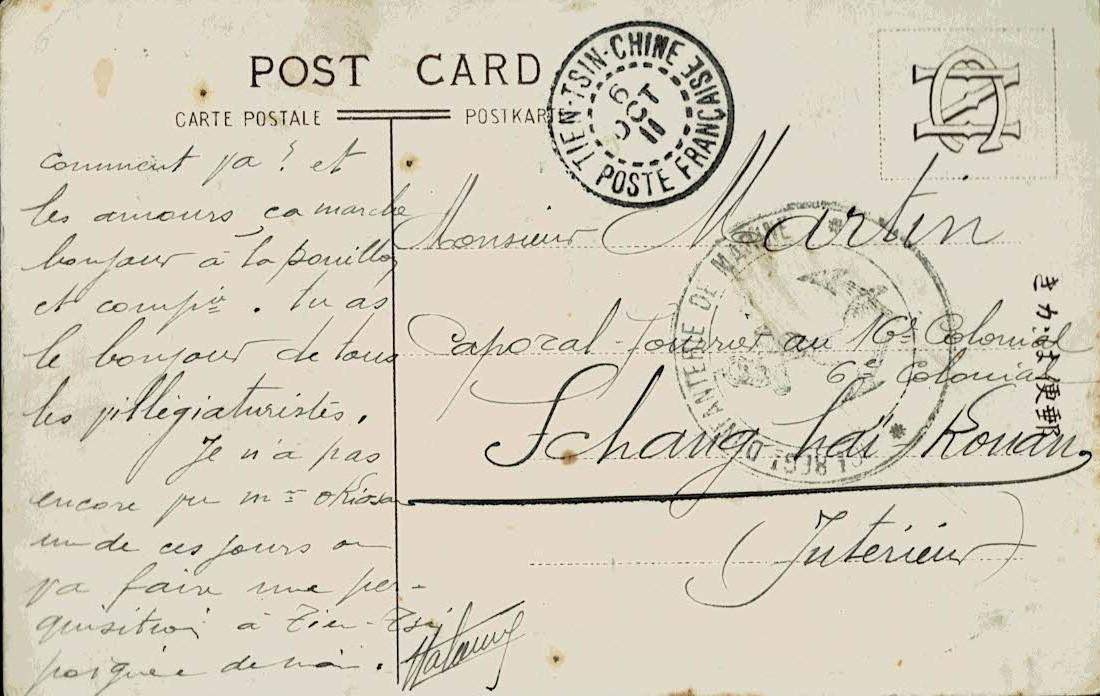 POST CARD
CARTE POSTALE
POSTKARTE
TIEN-TSIN-CHINE
6
OCT
11
POSTE FRANÇAISE
comment va ? et
les amours, ca marche
bonjour à la
et compie. tu as
le bonjour de tous
les villégiaturistes.
Je n'a pas
encore vu me
un de ces jours on
va faire une per-
quisition à Tien-Tsin
poignée de main.
Monsieur Martin
Caporal-fourrier au 16e Colonial
6e Colonial
Schang haï Kouan,
(Intérieur)
D'INFANTERIE DE MARINE
きかは便郵